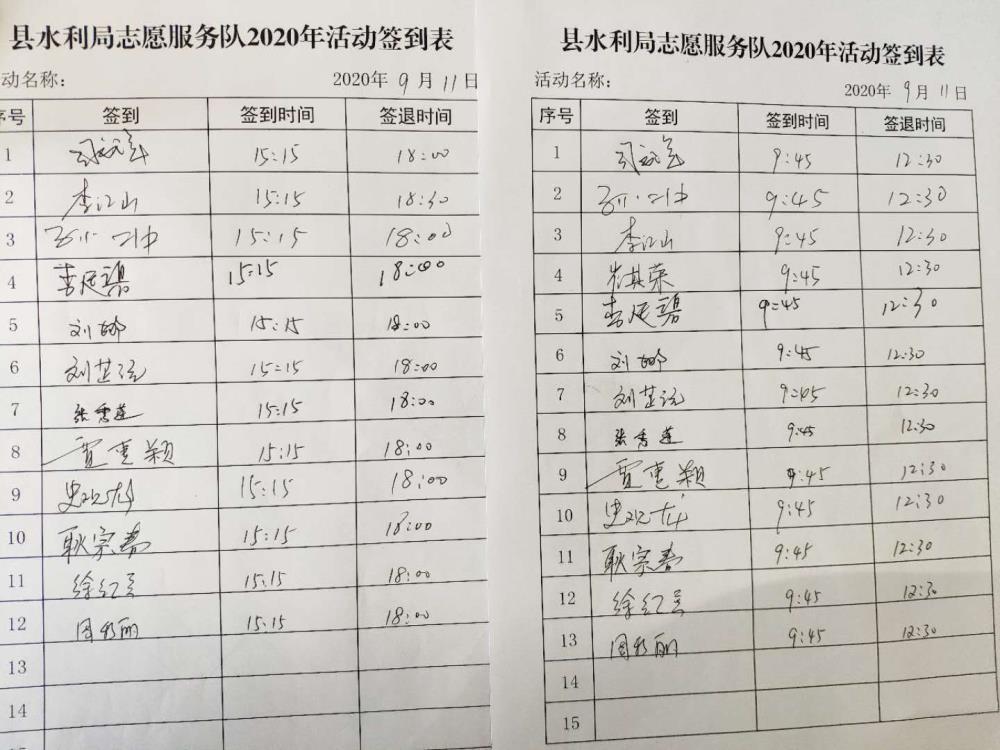 县水利局志愿服务队2020年活动签到表
动名称： 2020年 9月 11日
序号 签到 签到时间 签退时间
1 15:15 18:00
2 李江山 15:15 18:30
3 15:15 18:00
4 15:15 18:00
5 刘娜 15:15 18:00
6 刘芷 15:15 18:00
7 张秀莲 15:15 18:00
8 贾惠颖 15:15 18:00
9 史 15:15 18:00
10 耿宗春 15:15 18:00
11 徐红 15:15 18:00
12 周 丽 15:15 18:00
13
14
县水利局志愿服务队2020年活动签到表
活动名称： 2020年 9月 11日
序号 签到 签到时间 签退时间
1 9:45 12:30
2 9:45 12:30
3 李江山 9:45 12:30
4 其荣 9:45 12:30
5 9:45 12:30
6 刘娜 9:45 12:30
7 刘芷 9:45 12:30
8 张秀莲 9:45 12:30
9 贾惠颖 9:45 12:30
10 史 9:45 12:30
11 耿宗春 9:45 12:30
12 徐红 9:45 12:30
13 周 丽 9:45 12:30
14
15